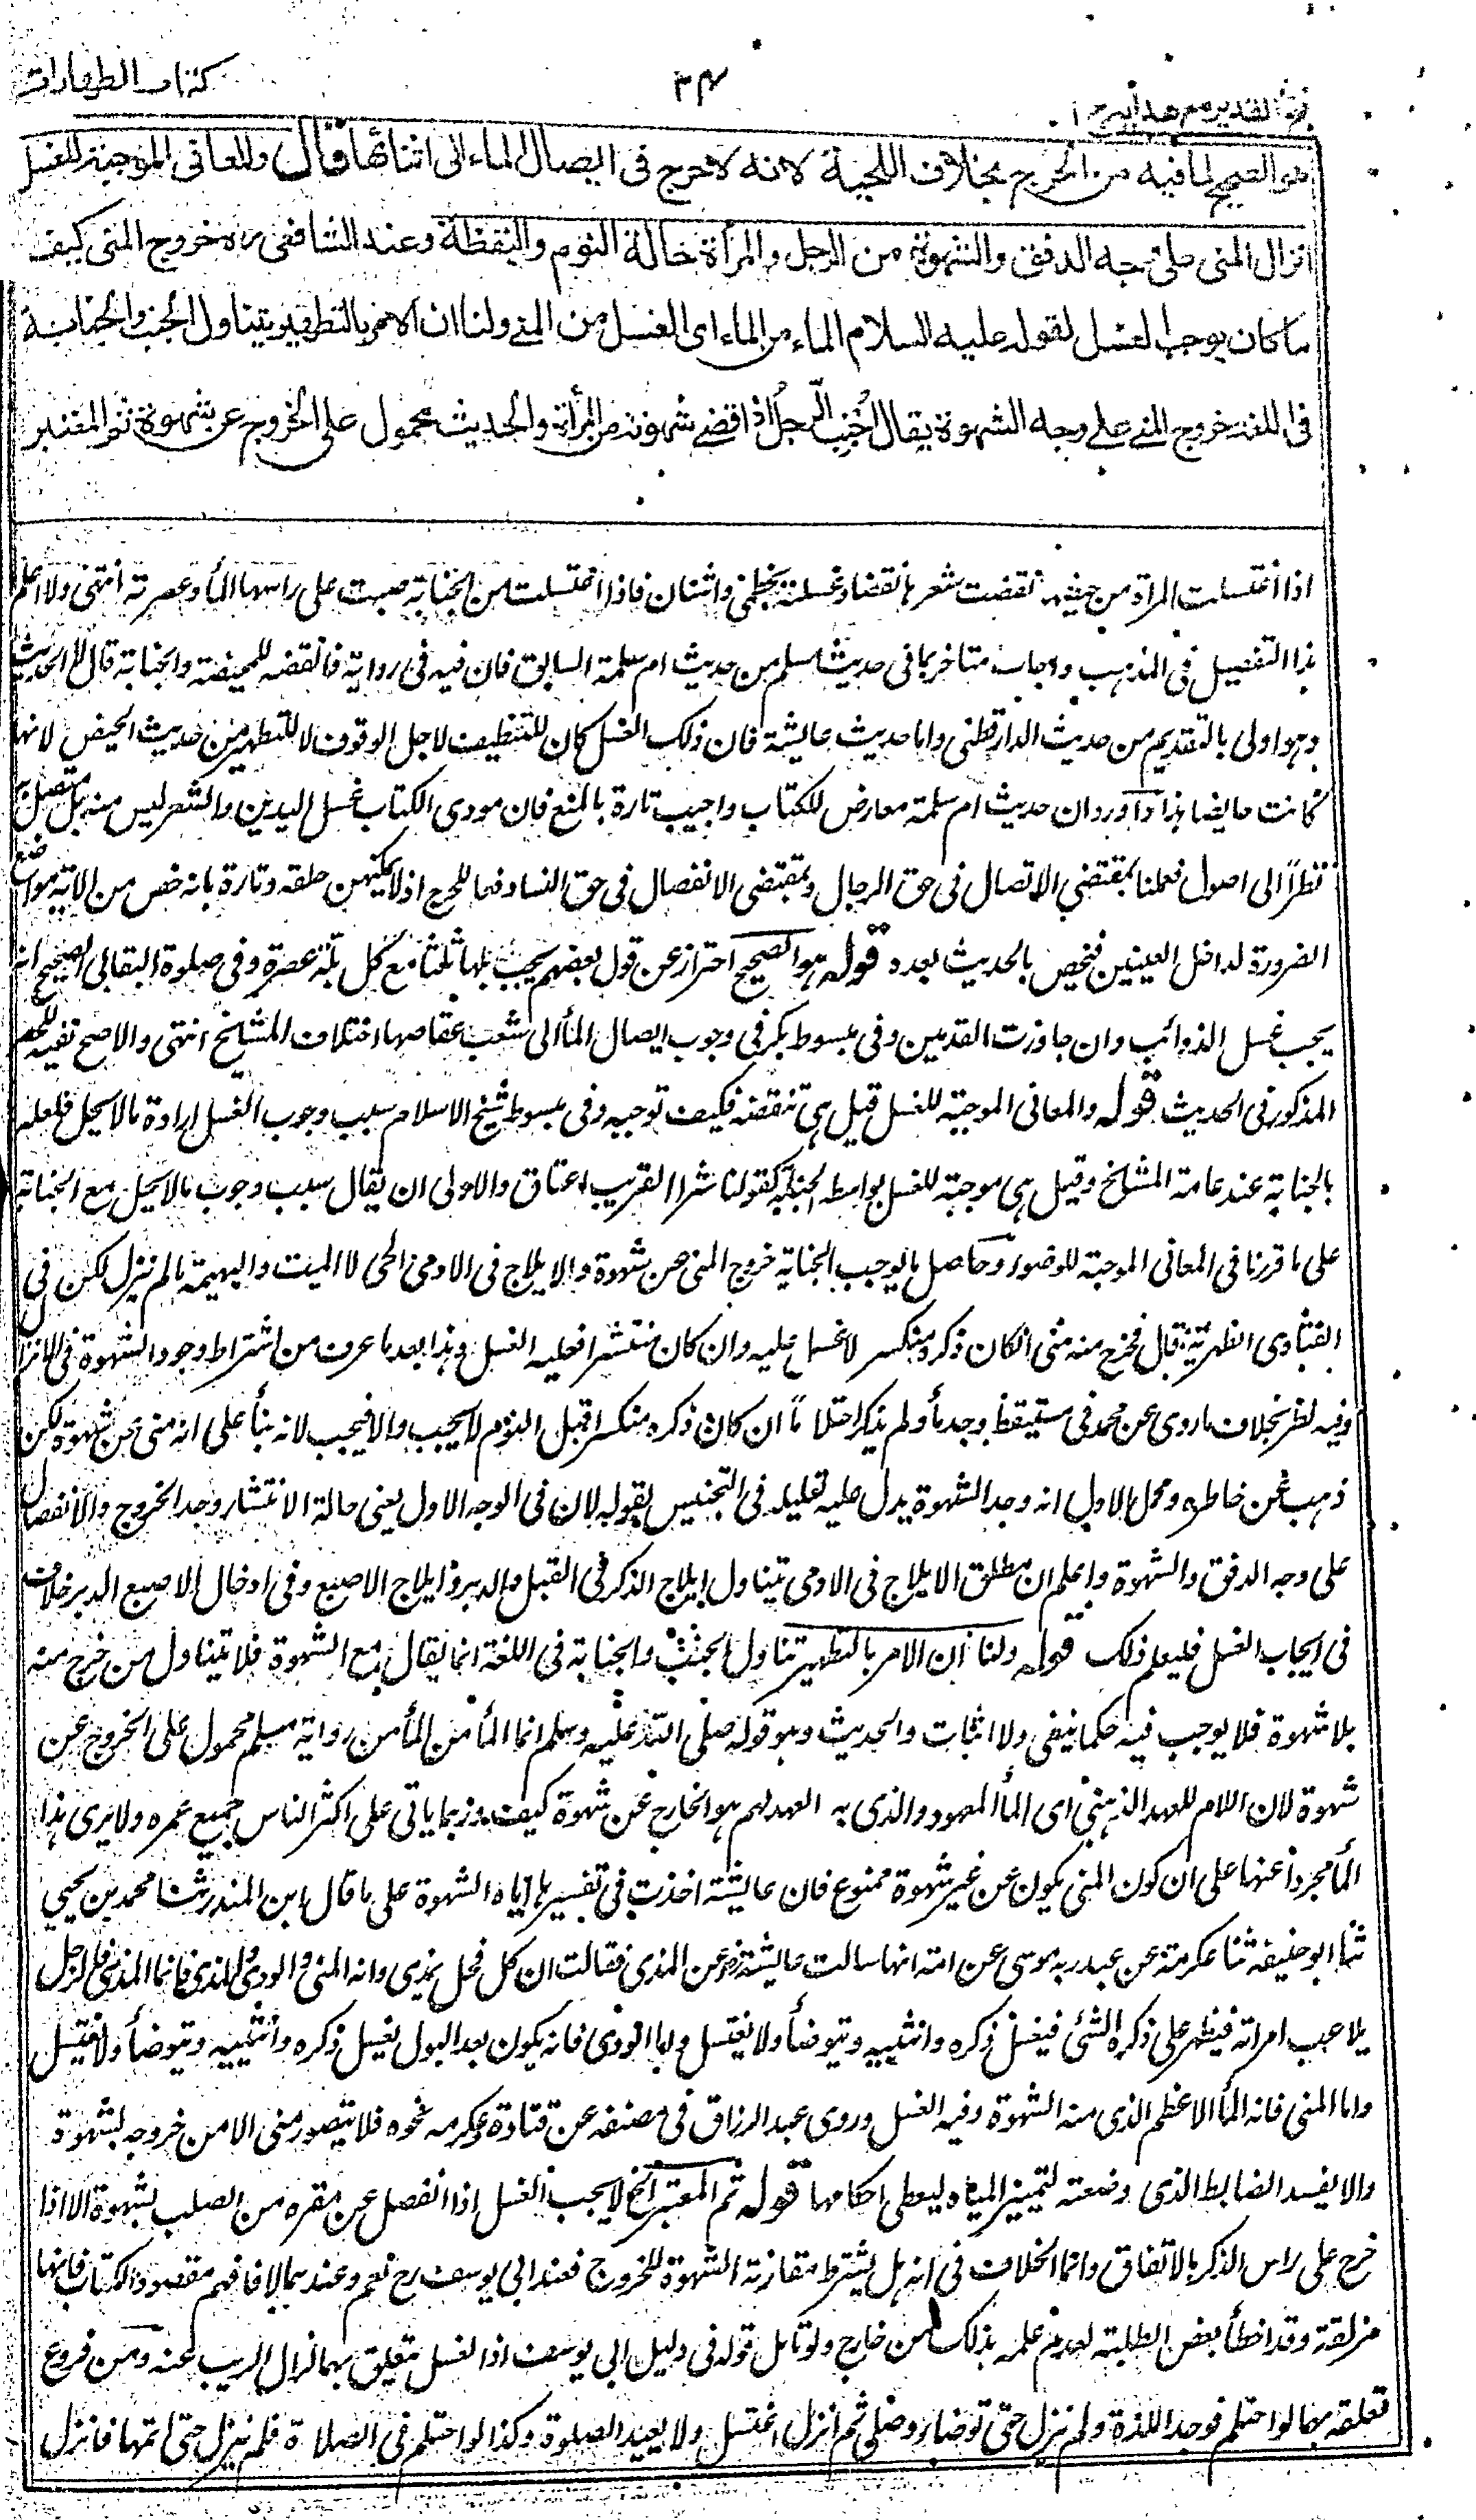 فتح القدير مع هداية ج ١
٣٤
كتاب الطهارات
هو الصحيح لما فيه من الحرج بخلاف اللحية لانه لا حرج فى ايصال الماء الى اثنائها قال والمعانى الموجبة للغسل
انزال المنى على وجه الدفق والشهوة من الرجل والمرأة حالة النوم واليقظة وعند الشافعى ره خروج المنى كيف
ما كان يوجب الغسل لقوله عليه السلام الماء من الماء اى الغسل من المنى ولنا ان الامر بالتطهير يتناول الجنب والجنابة
فى اللغة خروج المنى على وجه الشهوة يقال اُجْنِبَ الرّجلُ اذا قضى شهوته من المرأة والحديث محمول على الخروج عن شهوة ثم المعتبر
اذا اغتسلت المرأة من حيضها نقضت شعرها نقضا وغسلته بخطمى واشنان فاذا اغتسلت من الجنابة صبت على راسها الماء وعصرته انتهى ولا اعلم
هذا التفصيل فى المذهب واجاب متاخر بما فى حديث مسلم من حديث ام سلمة السابق فان فيه فى رواية فانقضه للحيضة والجنابة قال لا الحديث
وهو اولى بالتقديم من حديث الدارقطنى واما حديث عايشة فان ذلك الغسل كان للتنظيف لاجل الوقوف لا للتطهير من حديث الحيض لانها
كانت حايضا هذا واورد ان حديث ام سلمة معارض للكتاب واجيب تارة بالمنع فان مودى الكتاب غسل البدن والشعر ليس منه بل متصل به
نظرًا الى اصوله فعملنا بمقتضى الاتصال فى حق الرجال وبمقتضى الانفصال فى حق النساء دفعا للحرج اذ لا يمكنهن حلقه وتارة بانه خص من الاية مواضع
الضرورة كداخل العينين فخص بالحديث بعده قوله هو الصحيح احتراز عن قول بعضهم يجب بلها ثلثا مع كل بلة عصرة وفى صلوة البقالى الصحيح انه
يجب غسل الذوائب وان جاوزت القدمين وفى مبسوط بكر فى وجوب ايصال الماء الى شعب عقاصها اختلاف المشايخ انتهى والاصح نفيه للحصر
المذكور فى الحديث قوله والمعانى الموجبة للغسل قيل هى تنقضه فكيف توجبه وفى مبسوط شيخ الاسلام سبب وجوب الغسل ارادة ما لا يحل فعله
بالجنابة عند عامة المشايخ وقيل هى موجبة للغسل بواسطة الجنابة كقولنا شراء القريب اعتاق والاولى ان يقال سبب وجوب ما لا يحل مع الجنابة
على ما قررنا فى المعانى الموجبة للوضوء وحاصل ما يوجب الجنابة خروج المنى عن شهوة والايلاج فى الادمى الحى لا الميت والبهيمة ما لم ينزل لكن فى
الفتاوى الظهيرية بال فخرج منه منى ان كان ذكره منكسرا لا غسل عليه وان كان منتشرا فعليه الغسل وهذا بعد ما عرف من اشتراط وجود الشهوة فى الانزال
وفيه نظر بخلاف ما روى عن محمد فى مستيقظ وجد ماء ولم يتذكر احتلاماً ان كان ذكره منكسرا قبل النوم لا يجب والا فيجب لانه بناء على انه منى عن شهوة لكن
ذهب عن خاطره ومحمل الاول انه وجد الشهوة يدل عليه تعليله فى التجنيس بقوله لان فى الوجه الاول يعنى حالة الانتشار وجد الخروج والانفصال
على وجه الدفق والشهوة واعلم ان مطلق الايلاج فى الادمى يتناول ايلاج الذكر فى القبل والدبر وايلاج الاصبع وفى ادخال الاصبع الدبر خلاف
فى ايجاب الغسل فليعلم ذلك قوله ولنا ان الامر بالتطهير تناول الجنب والجنابة فى اللغة انما يقال مع الشهوة فلا يتناول من خرج منه
بلا شهوة فلا يوجب فيه حكما بنفى ولا اثبات والحديث وهو قوله صلى الله عليه وسلم انما الماء من الماء من رواية مسلم محمول على الخروج عن
شهوة لان اللام للعهد الذهنى اى الماء المعهود والذى به العهد لهم هو الخارج عن شهوة كيف وربما ياتى على اكثر الناس جميع عمره ولا يرى هذا
الماء مجردا عنها على ان كون المنى يكون عن غير شهوة ممنوع فان عايشة اخذت فى تفسيرها اياه الشهوة على ما قال ابن المنذر ثنا محمد بن يحيى
ثنا ابو حنيفة ثنا عكرمة عن عبد ربه بن موسى عن امه انها سالت عايشة رض عن المذى فقالت ان كل فحل يمذى وانه المنى والودى والمذى فاما المذى فالرجل
يلاعب امراته فيظهر على ذكره الشئى فيغسل ذكره وانثييه ويتوضأ ولا يغتسل واما الودى فانه يكون بعد البول يغسل ذكره وانثييه ويتوضأ ولا يغتسل
واما المنى فانه الماء الاعظم الذى منه الشهوة وفيه الغسل وروى عبد الرزاق فى مصنفه عن قتادة وعكرمه نحوه فلا يتصور منى الا من خروجه بشهوة
والا يفسد الضابط الذى وضعته لتمييز المياه ليعطى احكامها قوله ثم المعتبر الخ لا يجب الغسل اذا انفصل عن مقره من الصلب بشهوة الا اذا
خرج على راس الذكر بالاتفاق وانما الخلاف فى انه هل يشترط مقارنة الشهوة للخروج فعند ابى يوسف رح نعم وعندهما لا فافهم مقصود الكتاب فانها
مزلقة وقد اخطأ بعض الطلبة لعدم علمه بذلك من خارج ولو تامل قوله فى دليل ابى يوسف اذ الغسل متعلق بهما لزال الريب عنه ومن فروع
تعلقه بهما لو احتلم فوجد اللذة ولم ينزل حتى توضاء وصلى ثم انزل اغتسل ولا يعيد الصلوة وكذا لو احتلم فى الصلاة فلم ينزل حتى اتمها فانزل